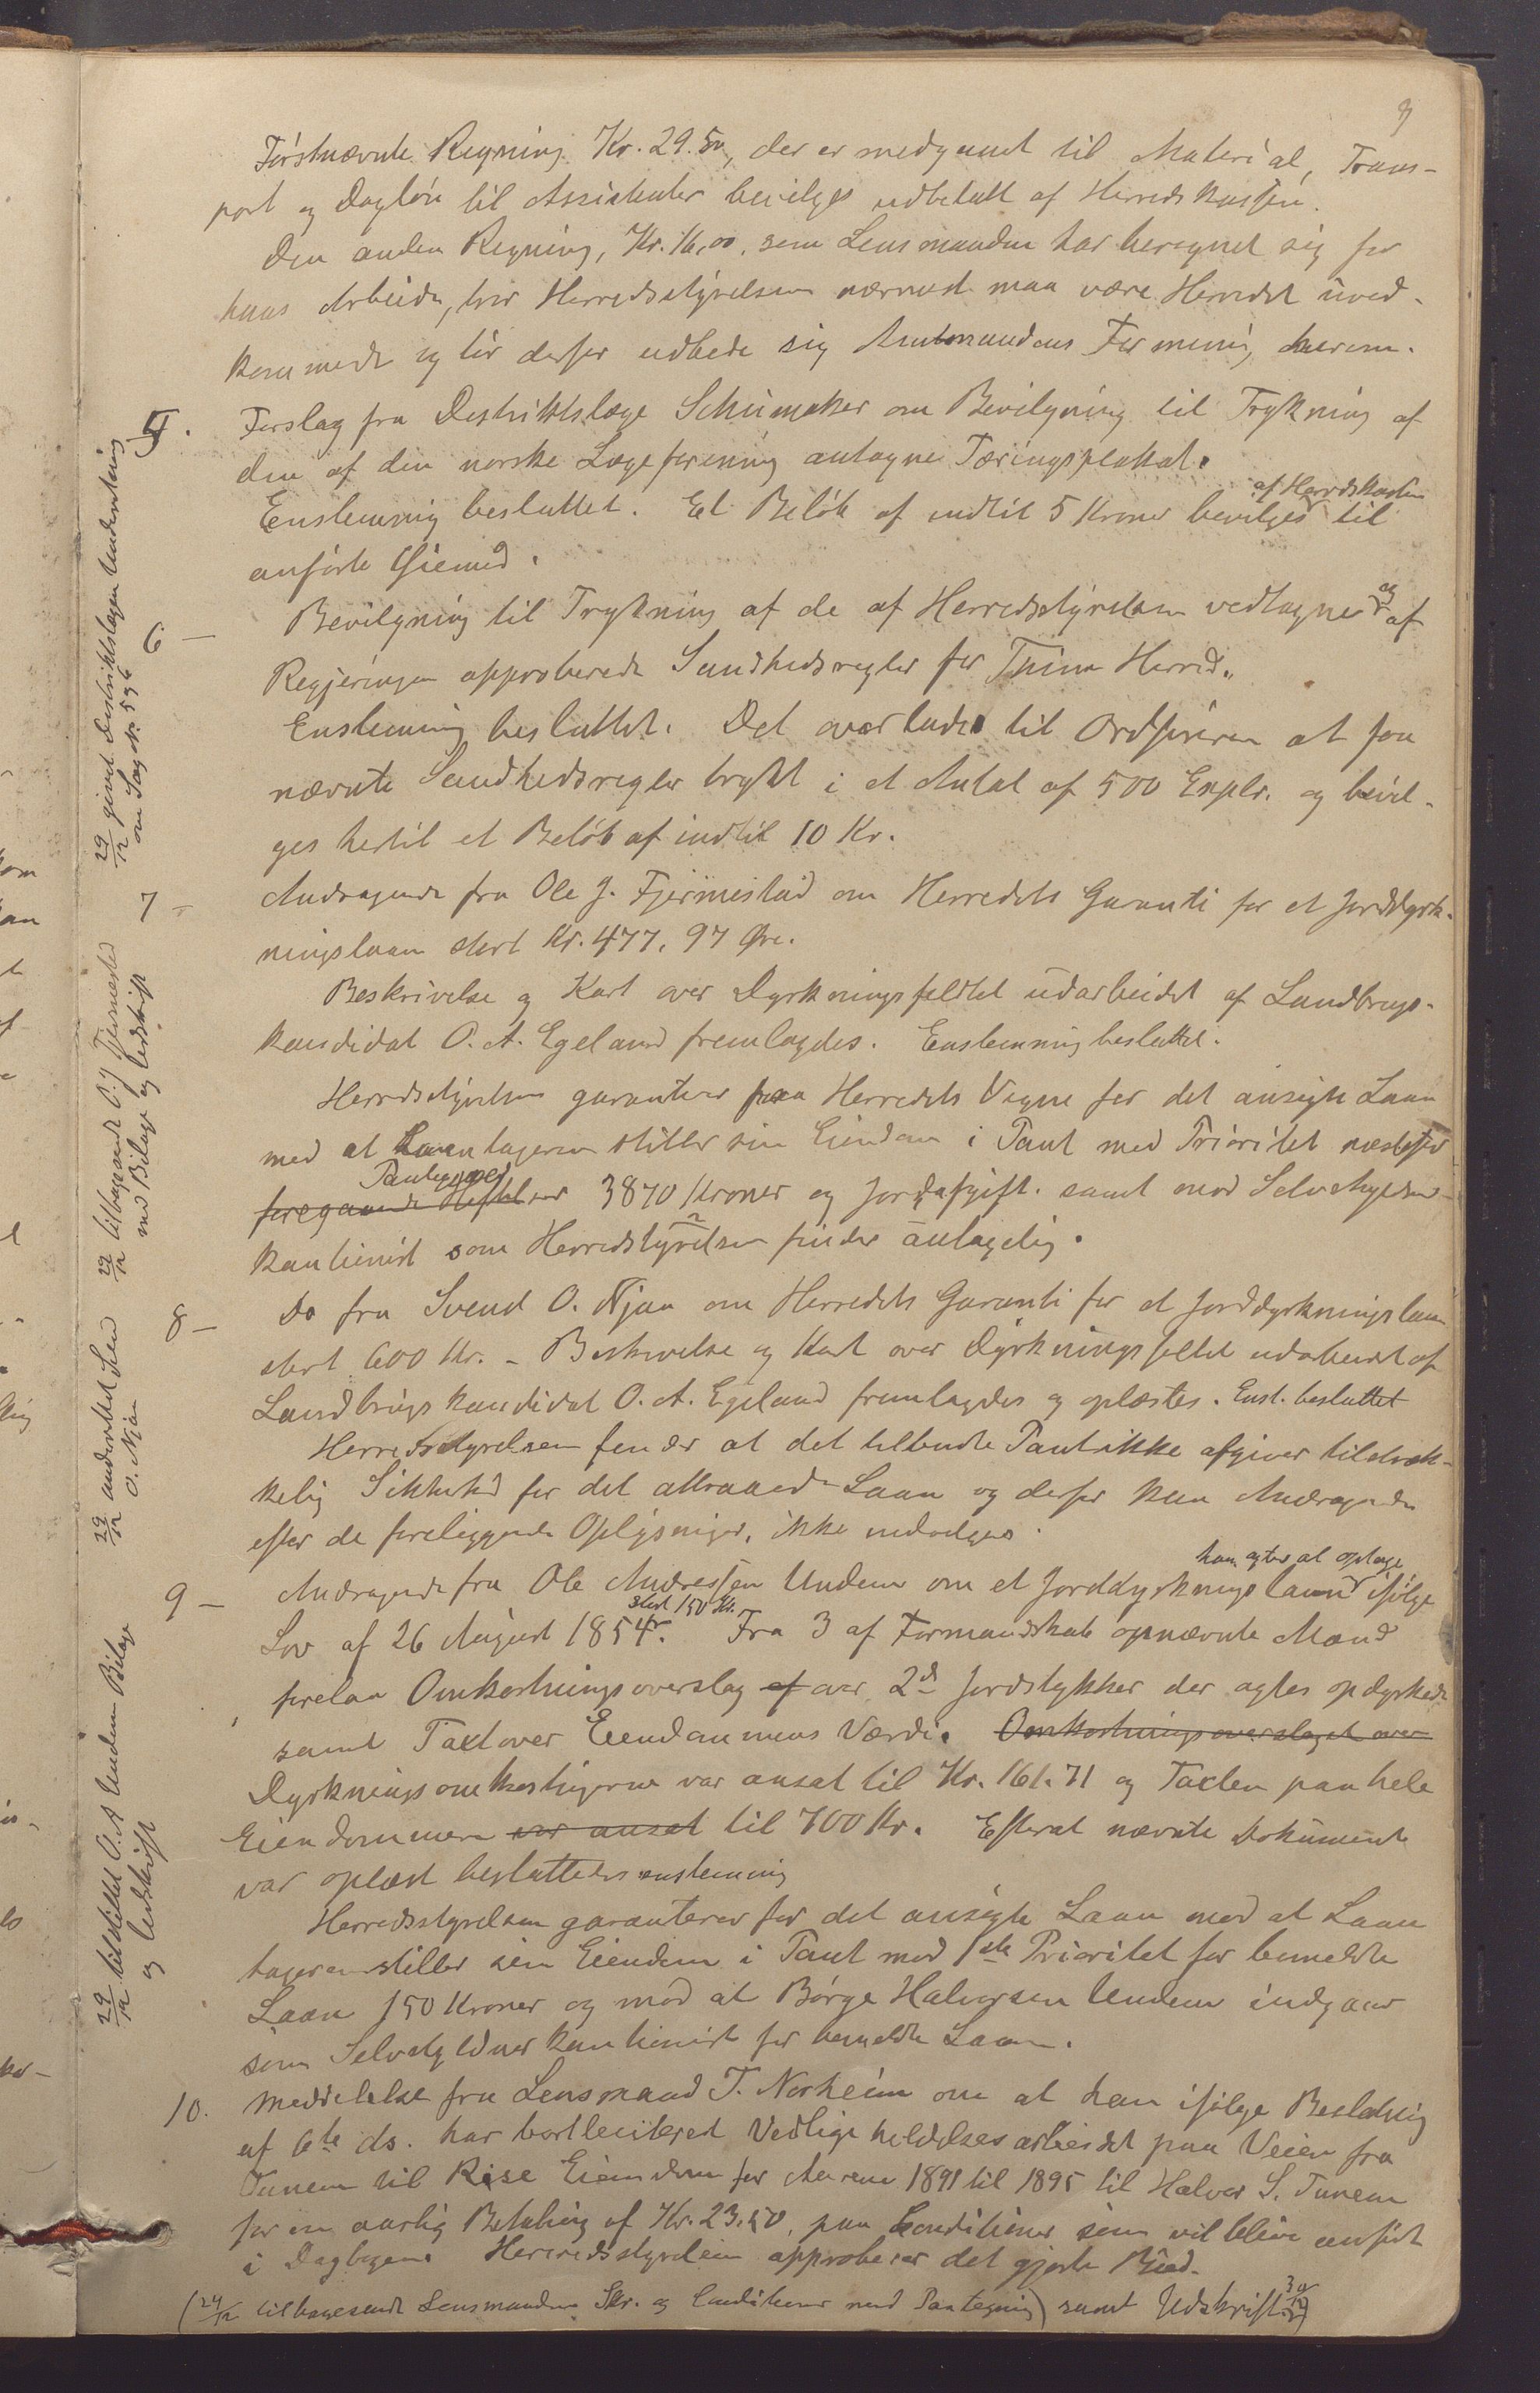 9
Förstnævnte Regning Kr. 29.50, der er medgaaet til Material, Trans-
port og Dagløn til Assistenter bevilges udbetalt af Herredskassen.
Den anden Regning, Kr. 16,00, som Lensmanden har beregnet sig for
hans Arbeide, tror Herredsstyrelsen nærmest maa være Herredet uved-
kommende og tör derfor udbede sig Amtmandens Formening herom.
5.
Forslag fra Destriktslæge Schumaker om Bevilgning til Trykning af
den af den norske Lægeforening antagne Tæringsplakat.
Enstemmig besluttet. Et Beløb af indtil 5 Kroner bevilges af Herredskassen til
anførte Øiemed.
6 —
Bevilgning til Trykning af de af Herredsstyrelsen vedtagne og af
Regjeringen approberede Sundhedsregler for Thime Herred.
Enstemmig besluttet. Det overlades til Ordføreren at faa
nævnte Sundhedsregler trykt i et Antal af 500 Explr. og bevil-
ges hertil et Beløb af indtil 10 Kr.
7 —
Andragende fra Ole J. Fjermestad om Herredets Garanti for et Jorddyrk-
ningslaan stort Kr. 477, 97 Øre.
Beskrivelse og Kart over Dyrkningsfeldtet udarbeidet af Landbrugs-
kandidat O. A. Egeland fremlagdes. Enstemmig besluttet.
Herredsstyrelsen garanterer paa Herredets Vegne for det ansøgte Laan
med at Laantageren stiller sin Eiendom i Pant med Prioritet næstefter
foregaaende Heftelser Panteg 3870 Kroner og Jordafgift. samt mod Selvskyldner-
kautionist som Herredstyrelsen finder antagelig.
8 —
Do fra Svend O. Njaa om Herredets Garanti for et Jorddyrkningslaan
stort 600 Kr. - Beskrivelse og Kart over Dyrkningsfeltet udarbeidet af
Landbrugskandidat O. A. Egeland fremlagdes og oplæstes. Enst. besluttet
Herredsstyrelsen finder at det tilbudte Pant ikke afgiver tilstræk-
kelig Sikkerhed for det attraaede Laan og derfor kan Andragendet
efter de foreliggende Oplysninger, ikke indvilges.
9 —
Andragende fra Ole Andressen Undem om et Jorddyrkningslaan han agter at optage ifølge
Lov af 26 August 1854 stort 150 Kr. Fra 3 af Formandskab opnævnte Mænd
forelaa Omkostningsoverslag af over 2de Jordstykker der agtes opdyrkede
samt Taxt over Eiendommens Værdi. Omkostningsoverslaget over
Dyrkningsomkostningerne var ansat til Kr. 161.71 og Taxten paa hele
Eiendommen var ansat til 700 Kr. Efterat nævnte Dokumente
var oplæst besluttedes enstemmig
Herredsstyrelsen garanterer for det ansøgte Laan mod at Laan
tageren stiller sin Eiendom i Pant med 1ste Prioritet for bemeldte
Laan 150 Kroner og mod at Börge Halvorsen Undem indgaar
som Selvskyldnerkautionist for bemeldte Laan.
10.
Meddelelse fra Lensmand T. Norheim om at han ifølge Beslutning
af 6te ds. har bortliciteret Vedligeholdelsesarbeidet paa Veien fra
Tunem til Rise Eiendom for Aarene 1891 til 1895 til Halvor S. Tunem
for en aarlig Betaling af Kr. 23,50, paa Konditioner som vil blive anført
i Dagbogen. Herredsstyrelsen approberer det gjorte Bud.
(29/12 tilbagesendt Lensmanden Skr. og Conditioner med Paategning) samt Udskrift 30/12
29/12 givet Destriktslægen Underretning
om Sag No 5 og 6
29/12 tilbagesendt O. J Fjermestad
med Bilage og Udskrift
29/12 underrettet Svend
O. Njaa
29/12 tilstillet O. A Undem Bilage
og Udskrift